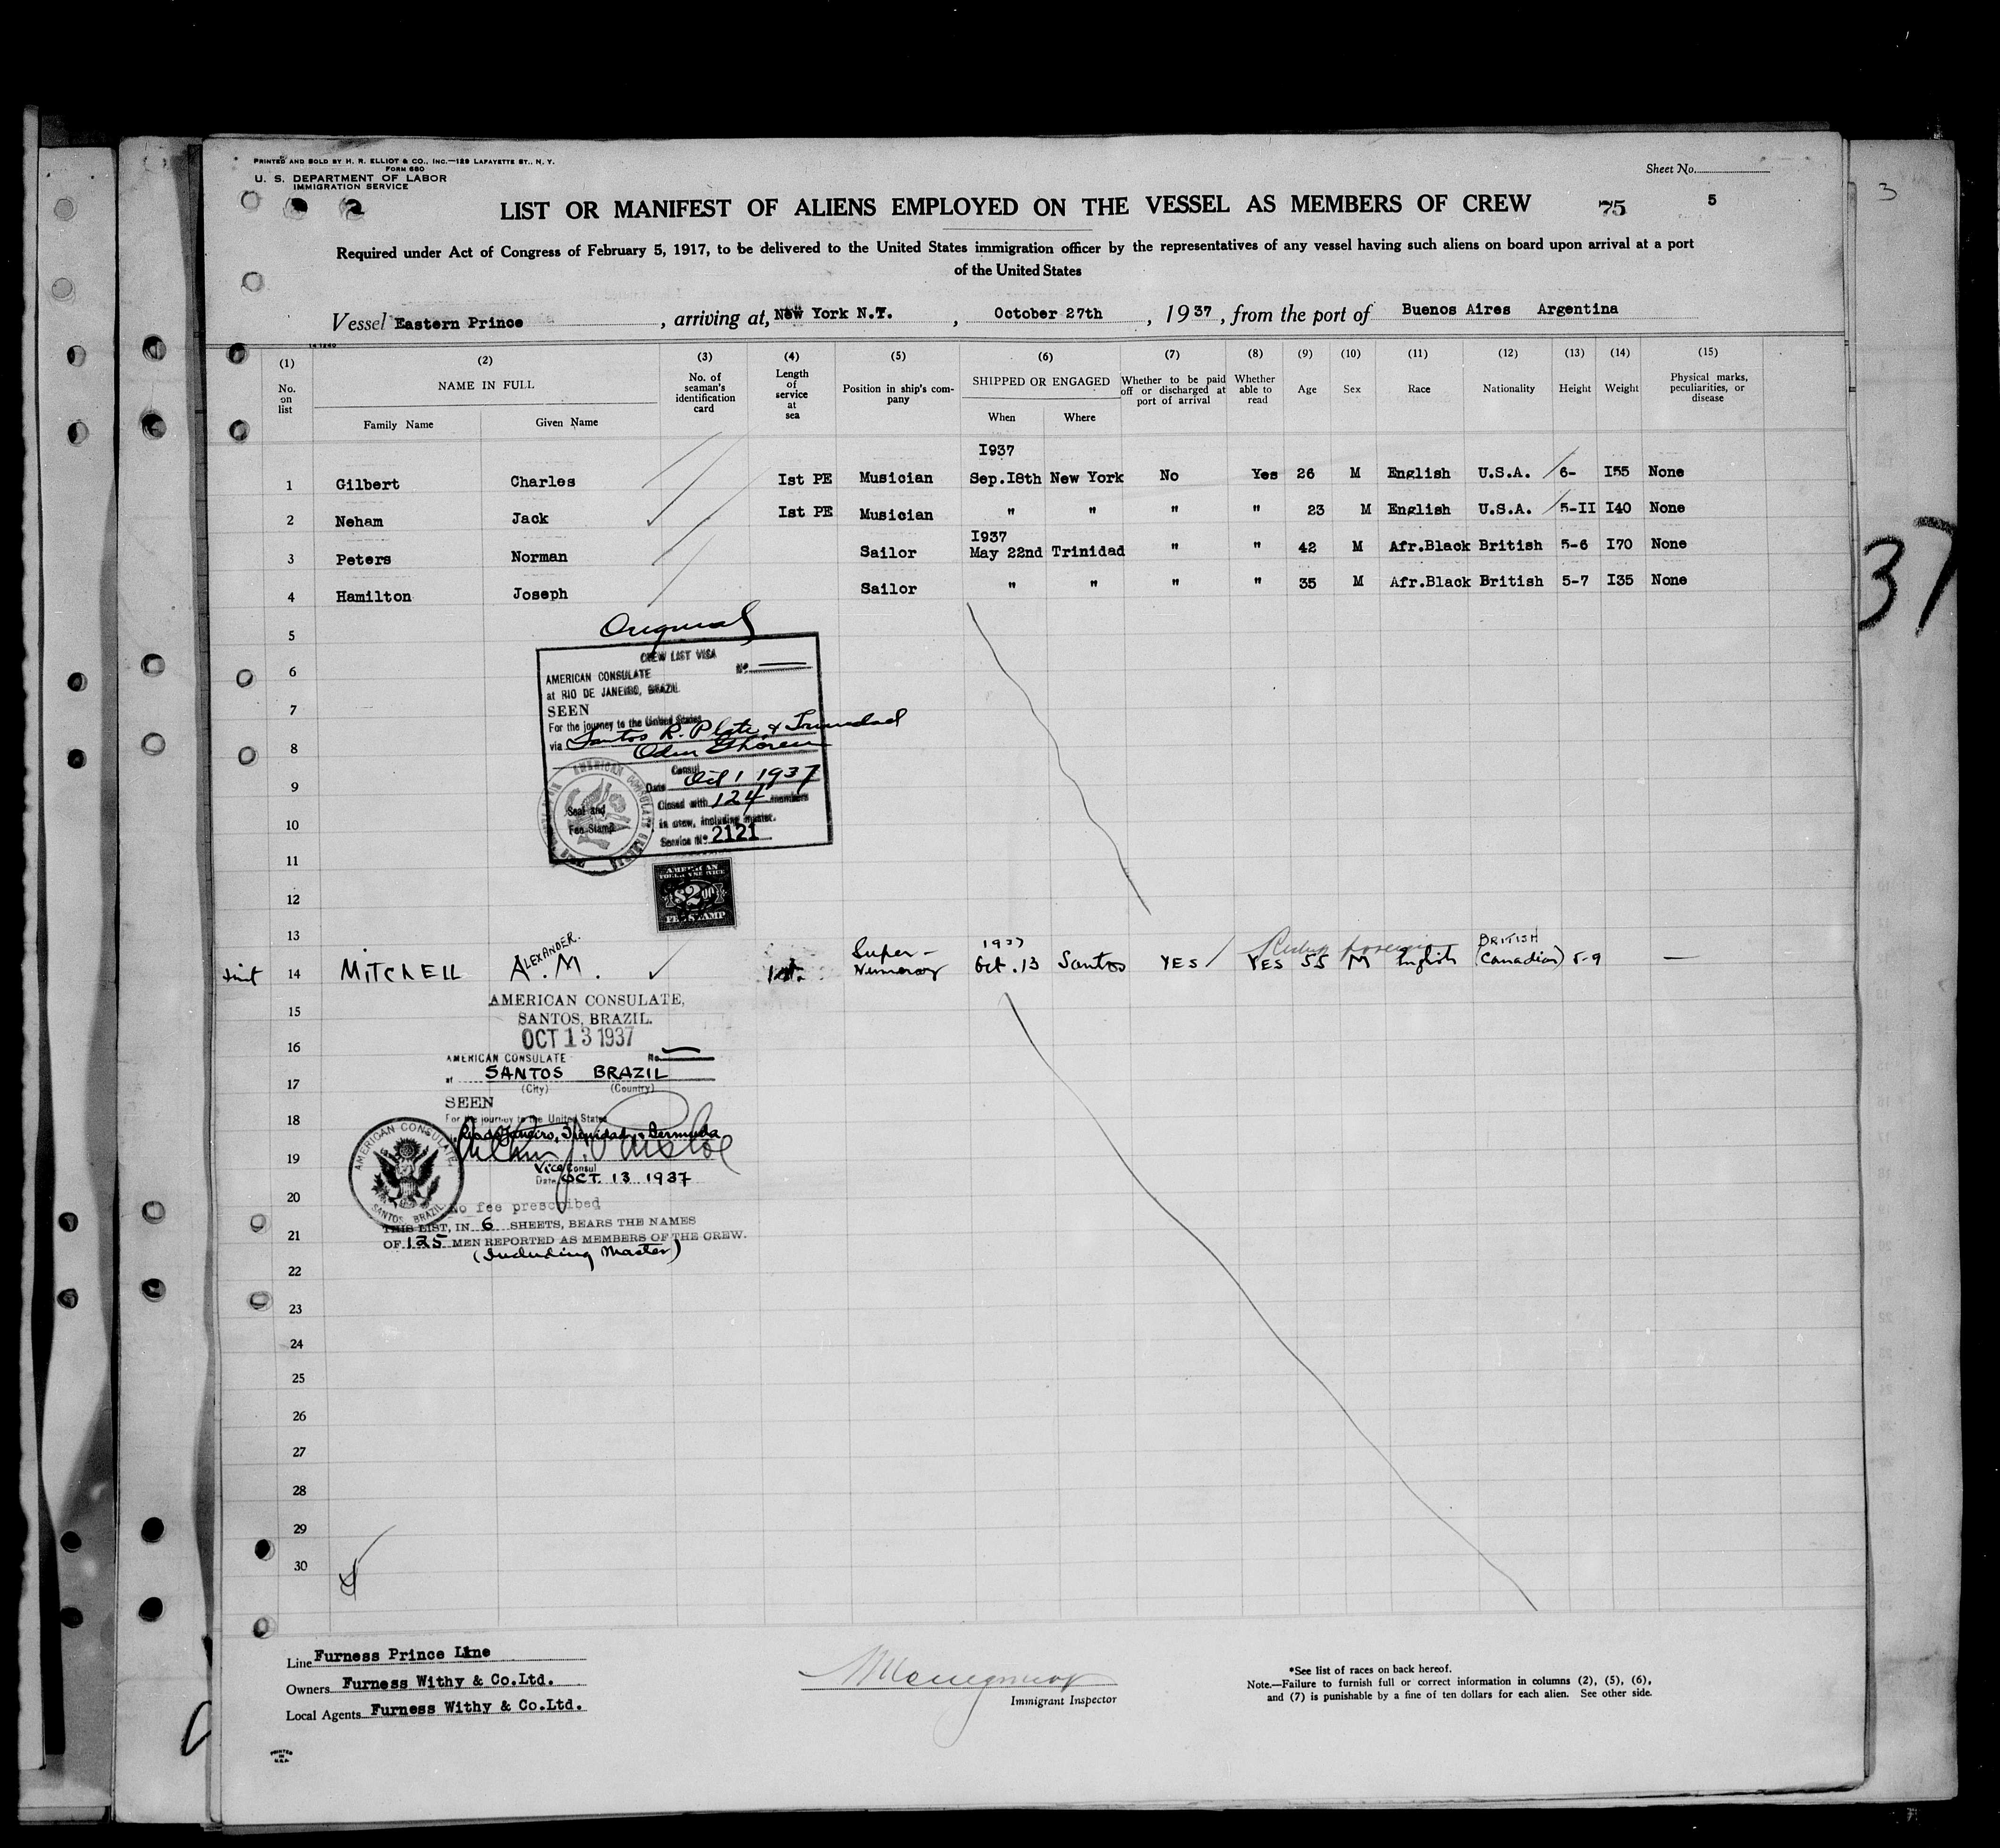 PRINTED AND SOLD BY H. R. ELLIOT & CO., INC.—129 LAFAYETTE ST., N. Y.
FORM 680
U. S. DEPARTMENT OF LABOR
IMMIGRATION SERVICE
Sheet No.
2
LIST OR MANIFEST OF ALIENS EMPLOYED ON THE VESSEL AS MEMBERS OF CREW 75 5
3
Required under Act of Congress of February 5, 1917, to be delivered to the United States immigration officer by the representatives of any vessel having such aliens on board upon arrival at a port
of the United States
Vessel Eastern Prince, arriving at, New York N.Y., October 27th, 1937, from the port of Buenos Aires Argentina
(1) (2) (3) (4) (5) (6) (7) (8) (9) (10) (11) (12) (13) (14) (15)
No. on list NAME IN FULL Family Name Given Name No. of seaman's identification card Length of service at sea Position in ship's company SHIPPED OR ENGAGED When Where Whether to be paid off or discharged at port of arrival Whether able to read Age Sex Race Nationality Height Weight Physical marks, peculiarities, or disease
I937
1 Gilbert Charles Ist PE Musician Sep.I8th New York No Yes 26 M English U.S.A. 6- I55 None
2 Neham Jack Ist PE Musician " " " " 23 M English U.S.A. 5-II I40 None
I937
3 Peters Norman Sailor May 22nd Trinidad " " 42 M Afr.Black British 5-6 I70 None
4 Hamilton Joseph Sailor " " " " 35 M Afr.Black British 5-7 I35 None
37
5 Original
CREW LIST VISA
6 AMERICAN CONSULATE No.
at RIO DE JANEIRO, BRAZIL
7 SEEN
For the journey to the United States
8 via Santos R. Plate & Trinidad
Consul
9 Date Oct 1 1937
Closed with 124 members
10 Seal and Fee Stamp in crew, including master.
Service No. 2121
11
AMERICAN
12 $2.00
FEE STAMP
13
1937 BRITISH
14 MITCHELL ALEXANDER. A.M. 1st. Super-Numerary Oct.13 Santos YES YES 55 M English (Canadian) 5-9 —
AMERICAN CONSULATE,
15 SANTOS, BRAZIL.
OCT 13 1937
16 AMERICAN CONSULATE No.
at SANTOS BRAZIL
17 (City) (Country)
SEEN
18 For the journey to the United States
Rio de Janeiro, Trinidad & Bermuda
AMERICAN CONSULATE, SANTOS BRAZIL
19 Vice Consul
Date OCT. 13 1937
20 No fee prescribed
THIS LIST, IN 6 SHEETS, BEARS THE NAMES
21 OF 125 MEN REPORTED AS MEMBERS OF THE CREW.
(Including Master)
22
23
24
25
26
27
28
29
30
Line Furness Prince Line
Owners Furness Withy & Co.Ltd.
Local Agents Furness Withy & Co.Ltd.
Immigrant Inspector
*See list of races on back hereof.
Note.—Failure to furnish full or correct information in columns (2), (5), (6),
and (7) is punishable by a fine of ten dollars for each alien. See other side.
PRINTED
IN
U.S.A.